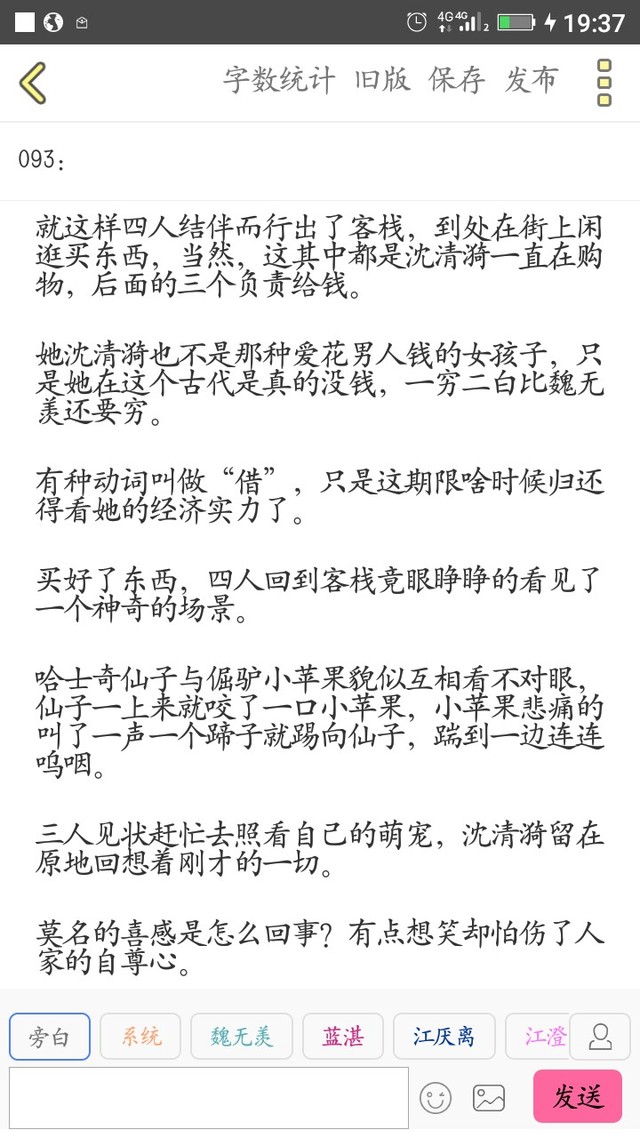 4G 4G 2 19:37
字数统计 旧版 保存 发布
093:
就这样四人结伴而行出了客栈，到处在街上闲
逛买东西，当然，这其中都是沈清漪一直在购
物，后面的三个负责给钱。
她沈清漪也不是那种爱花男人钱的女孩子，只
是她在这个古代是真的没钱，一穷二白比魏无
羡还要穷。
有种动词叫做“借”，只是这期限啥时候归还
得看她的经济实力了。
买好了东西，四人回到客栈竞眼睁睁的看见了
一个神奇的场景。
哈士奇仙子与倔驴小苹果貌似互相看不对眼，
仙子一上来就咬了一口小苹果，小苹果悲痛的
叫了一声一个蹄子就踢向仙子，踹到一边连连
呜咽。
三人见状赶忙去照看自己的萌宠，沈清漪留在
原地回想着刚才的一切。
莫名的喜感是怎么回事？有点想笑却怕伤了人
家的自尊心。
旁白 系统 魏无羡 蓝湛 江厌离 江澄
发送